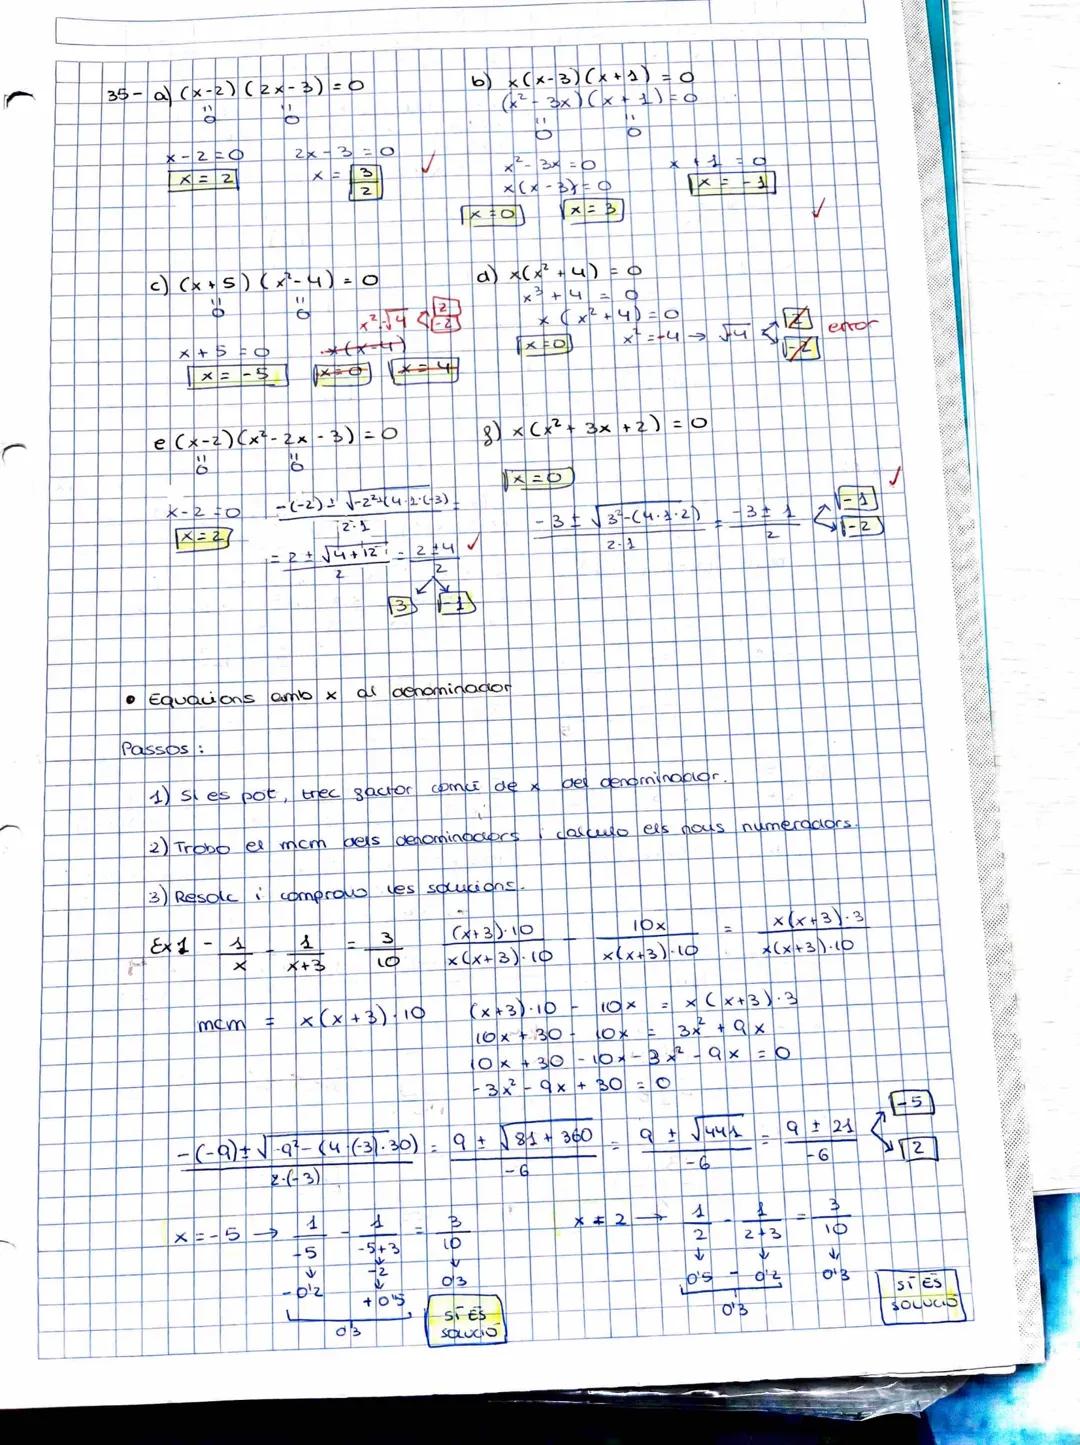 35- a) (x-2) (2x-3) = 0
= 0 = 0
x-2=0 2x-3=0
x=2 x= 3/2 ✓
b) x(x-3)(x+1) = 0
(x²-3x)(x+1)=0
= 0 = 0
x²-3x=0 x+1=0
x(x-3)=0 x=-1
x=0 x=3 ✓
c) (x+5) (x²-4) = 0
= 0 = 0
x²=√4 2 -2
x+5=0 x(x-4)
x=-5 x=0 x=4
d) x(x²+4) = 0
x³+4 = 0
x(x²+4)=0
x=0 x²=-4 → √4 2 -2 error
e (x-2)(x²-2x-3)=0
= 0 = 0
x-2=0 -(-2)±√-2²-(4·1·(-3) / 2·1 =
x=2
= 2±√4+12 / 2 = 2±4 / 2 ✓
3 -1
f) x(x²+3x+2) = 0
x=0
-3±√3²-(4·1·2) / 2·1 = -3±1 / 2 -1 -2 ✓
• Equacions amb x al denominador
Passos:
1) Si es pot, trec factor comú de x del denominador.
2) Trobo el mcm dels denominadors i calculo els nous numeradors.
3) Resolc i comprovo les solucions.
Ex1 - 1/x - 1/x+3 = 3/10 (x+3)·10 / x(x+3)·10 - 10x / x(x+3)·10 = x(x+3)·3 / x(x+3)·10
mcm = x(x+3)·10 (x+3)·10 - 10x = x(x+3)·3
10x+30-10x = 3x²+9x
10x+30-10x-3x²-9x = 0
-3x²-9x+30=0
-(-9)±√-9²-(4·(-3)·30) / 2·(-3) = 9±√81+360 / -6 = 9±√441 / -6 = 9±21 / -6 -5 2
x=-5 → 1/-5 - 1/-5+3 = 3/10
-2
-0'2 +0'5 0'3
0'3
SÍ ÉS
SOLUCIÓ
x=2 → 1/2 - 1/2+3 = 3/10
0'5 - 0'2 0'3
0'3
SÍ ÉS
SOLUCIÓ